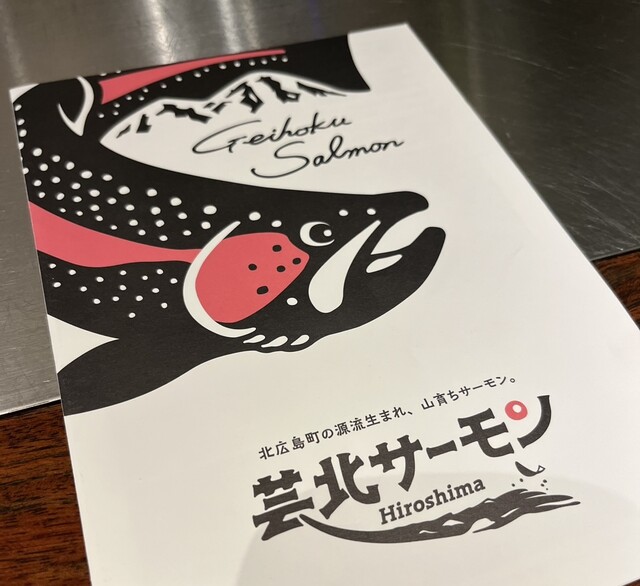 Geihoku
Salmon
北広島町の源流生まれ、山育ちサーモン。
芸北サーモン
Hiroshima